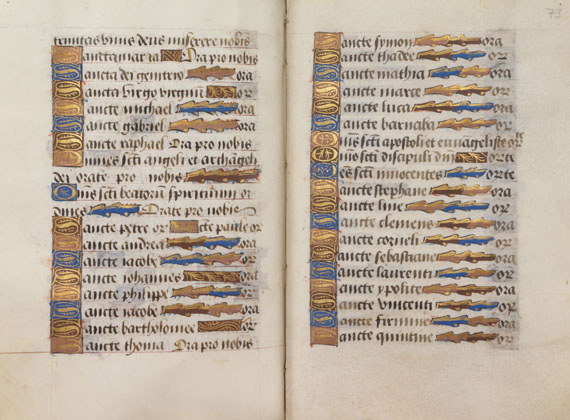 trinitas vnus deus miserere nobis
Sancta maria Ora pro nobis
Sancta dei genitrix ora
Sancta virgo virginum or
Sancte michael ora
Sancte gabriel ora
Sancte raphael Ora pro nobis
Omnes sancti angeli et archangeli
dei orate pro nobis
Omnes sancti beatorum spirituum or
dines Orate pro nobis
Sancte petre or Sancte paule or
Sancte andrea ora
Sancte iacobe ora
Sancte iohannes or
Sancte philippe ora
Sancte iacobe ora
Sancte bartholomee or
Sancte thoma Ora pro nobis
73
Sancte symon ora
Sancte thadee or
Sancte mathia ora
Sancte marce or
Sancte luca ora
Sancte barnaba or
Omnes sancti apostoli et euuagelistе orte
Omnes sancti discipuli dni orte
Omnes sancti innocentes orte
Sancte stephane ora
Sancte line or
Sancte clemens ora
Sancte corneli or
Sancte sebastiane ora
Sancte laurenti or
Sancte ypolite ora
Sancte vincenti or
Sancte firmine ora
Sancte quintine or